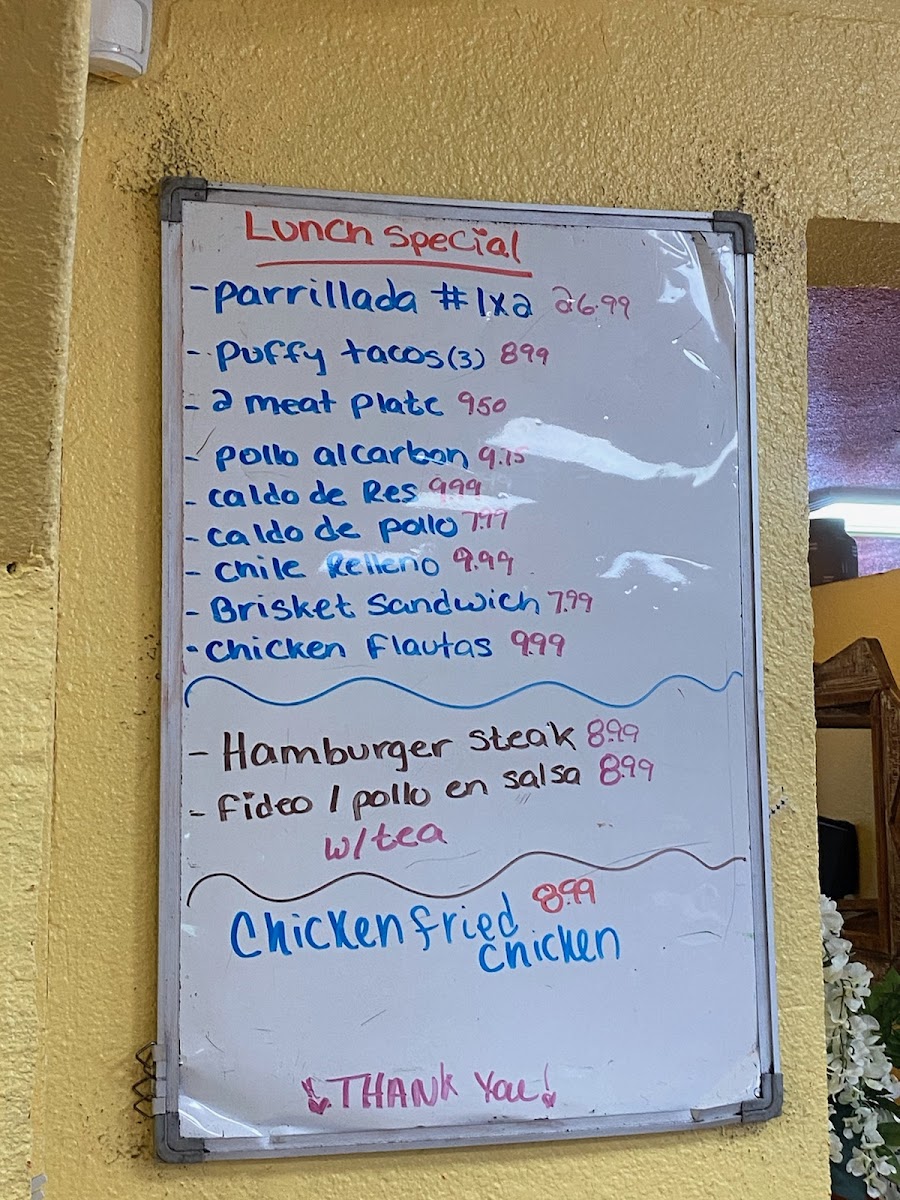 Lunch Special
- Parrillada #1x2 26.99
- Puffy tacos (3) 8.99
- 2 meat plate 9.50
- pollo al carbon 9.75
- caldo de Res 9.99
- caldo de pollo 7.99
- Chile Relleno 9.99
- Brisket Sandwich 7.99
- Chicken Flautas 9.99
- Hamburger steak 8.99
- Fideo / pollo en salsa 8.99
w/tea
Chicken fried 8.99
Chicken
THANK You!